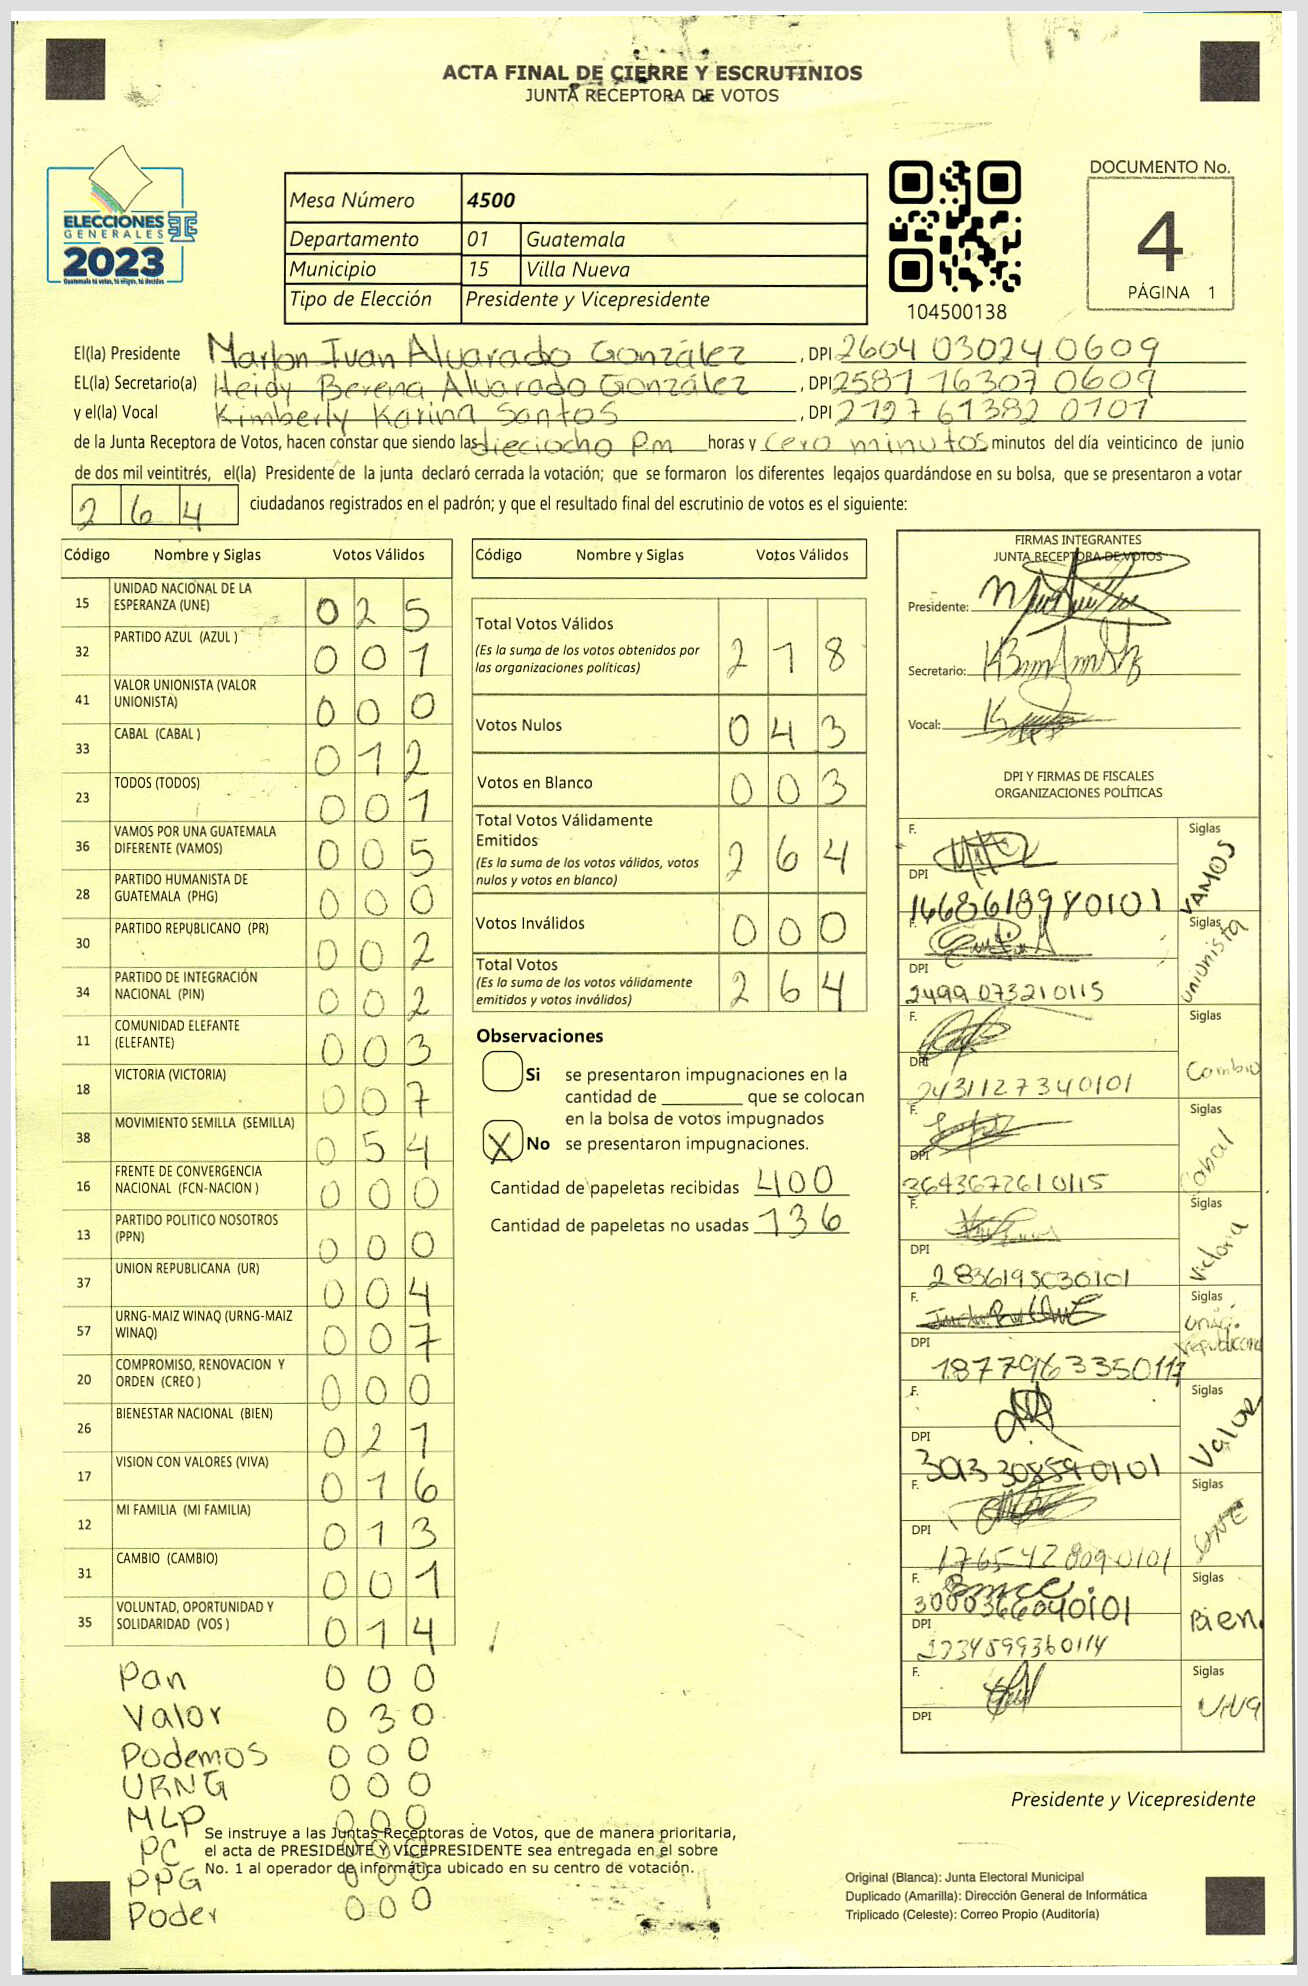 ACTA FINAL DE CIERRE Y ESCRUTINIOS
JUNTA RECEPTORA DE VOTOS
ELECCIONES
GENERALES
2023
Guatemala tú votas, tú eliges, tú decides
Mesa Número 4500
Departamento 01 Guatemala
Municipio 15 Villa Nueva
Tipo de Elección Presidente y Vicepresidente
104500138
DOCUMENTO No.
4
PÁGINA 1
El(la) Presidente Marlon Ivan Alvarado González , DPI 2604 03024 0609
EL(la) Secretario(a) Heidy Berena Alvarado González , DPI 2581 16307 0609
y el(la) Vocal Kimberly Karina Santos , DPI 2727 61382 0101
de la Junta Receptora de Votos, hacen constar que siendo las dieciocho P.m horas y cero minutos minutos del día veinticinco de junio
de dos mil veintitrés, el(la) Presidente de la junta declaró cerrada la votación; que se formaron los diferentes legajos guardándose en su bolsa, que se presentaron a votar
264 ciudadanos registrados en el padrón; y que el resultado final del escrutinio de votos es el siguiente:
Código Nombre y Siglas Votos Válidos
15 UNIDAD NACIONAL DE LA ESPERANZA (UNE) 025
32 PARTIDO AZUL (AZUL ) 001
41 VALOR UNIONISTA (VALOR UNIONISTA) 000
33 CABAL (CABAL ) 012
23 TODOS (TODOS) 001
36 VAMOS POR UNA GUATEMALA DIFERENTE (VAMOS) 005
28 PARTIDO HUMANISTA DE GUATEMALA (PHG) 000
30 PARTIDO REPUBLICANO (PR) 002
34 PARTIDO DE INTEGRACIÓN NACIONAL (PIN) 002
11 COMUNIDAD ELEFANTE (ELEFANTE) 003
18 VICTORIA (VICTORIA) 007
38 MOVIMIENTO SEMILLA (SEMILLA) 054
16 FRENTE DE CONVERGENCIA NACIONAL (FCN-NACION ) 000
13 PARTIDO POLITICO NOSOTROS (PPN) 000
37 UNION REPUBLICANA (UR) 004
57 URNG-MAIZ WINAQ (URNG-MAIZ WINAQ) 007
20 COMPROMISO, RENOVACION Y ORDEN (CREO ) 000
26 BIENESTAR NACIONAL (BIEN) 021
17 VISION CON VALORES (VIVA) 016
12 MI FAMILIA (MI FAMILIA) 013
31 CAMBIO (CAMBIO) 001
35 VOLUNTAD, OPORTUNIDAD Y SOLIDARIDAD (VOS ) 014
Pan 000
Valor 030
Podemos 000
URNG 000
MLP 000
PC 000
PPG 000
Poder 000
Código Nombre y Siglas Votos Válidos
Total Votos Válidos 218
(Es la suma de los votos obtenidos por
las organizaciones políticas)
Votos Nulos 043
Votos en Blanco 003
Total Votos Válidamente
Emitidos 264
(Es la suma de los votos válidos, votos
nulos y votos en blanco)
Votos Inválidos 000
Total Votos 264
(Es la suma de los votos válidamente
emitidos y votos inválidos)
Observaciones
Si se presentaron impugnaciones en la
cantidad de ________ que se colocan
en la bolsa de votos impugnados
X No se presentaron impugnaciones.
Cantidad de papeletas recibidas 400
Cantidad de papeletas no usadas 136
FIRMAS INTEGRANTES
JUNTA RECEPTORA DE VOTOS
Presidente:
Secretario:
Vocal:
DPI Y FIRMAS DE FISCALES
ORGANIZACIONES POLÍTICAS
F. Siglas VAMOS
DPI 1668618980101
F. Siglas Unionista
DPI 2499 073210115
F. Siglas Cambio
DPI 2431127340101
F. Siglas Cabal
DPI 3643672610115
F. Siglas Victoria
DPI 2836195030101
F. Siglas Unión republicana
DPI 1877963350117
F. Siglas Valor
DPI 3013 308590101
F. Siglas UNE
DPI 176542 8090101
F. Siglas Bien.
3000366040101
DPI 2734599360114
F. Siglas VIVA
DPI
Presidente y Vicepresidente
Se instruye a las Juntas Receptoras de Votos, que de manera prioritaria,
el acta de PRESIDENTE Y VICEPRESIDENTE sea entregada en el sobre
No. 1 al operador de informática ubicado en su centro de votación.
Original (Blanca): Junta Electoral Municipal
Duplicado (Amarilla): Dirección General de Informática
Triplicado (Celeste): Correo Propio (Auditoría)